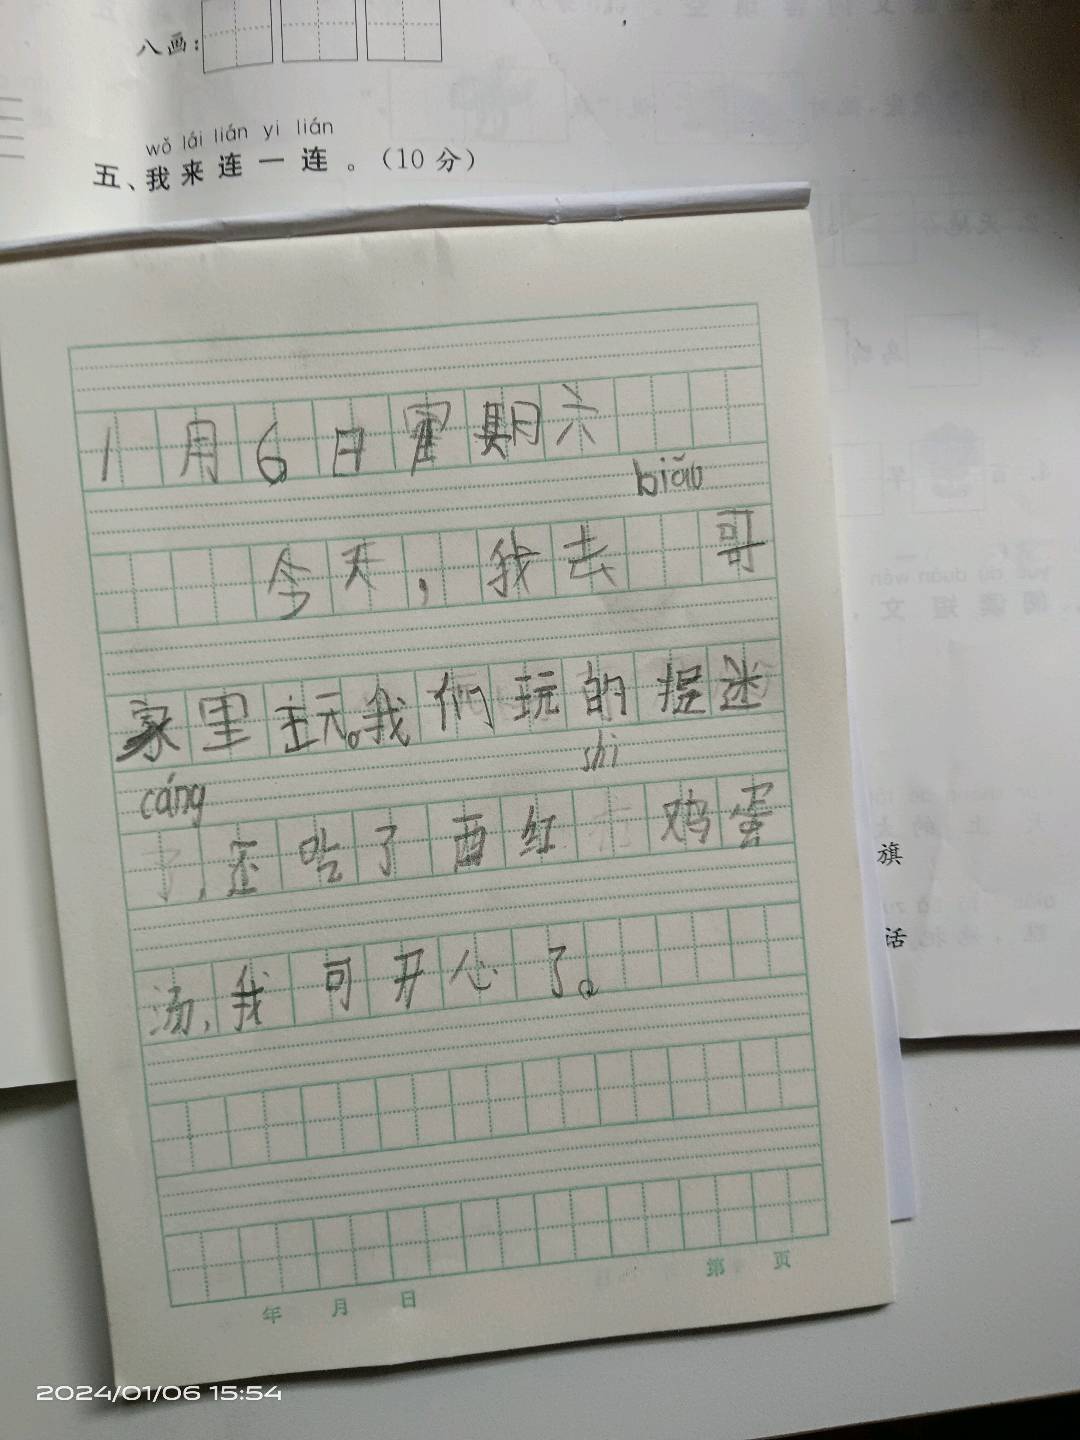 八画：
wǒ lái lián yi lián
五、我来连一连。（10分）
1月6日星期六
biǎo
今天，我去 哥
家里玩。我们玩的捉迷
cáng shi
，还吃了西红 鸡蛋
汤，我可开心了。
旗
话
年 月 日 第 页
2024/01/06 15:54